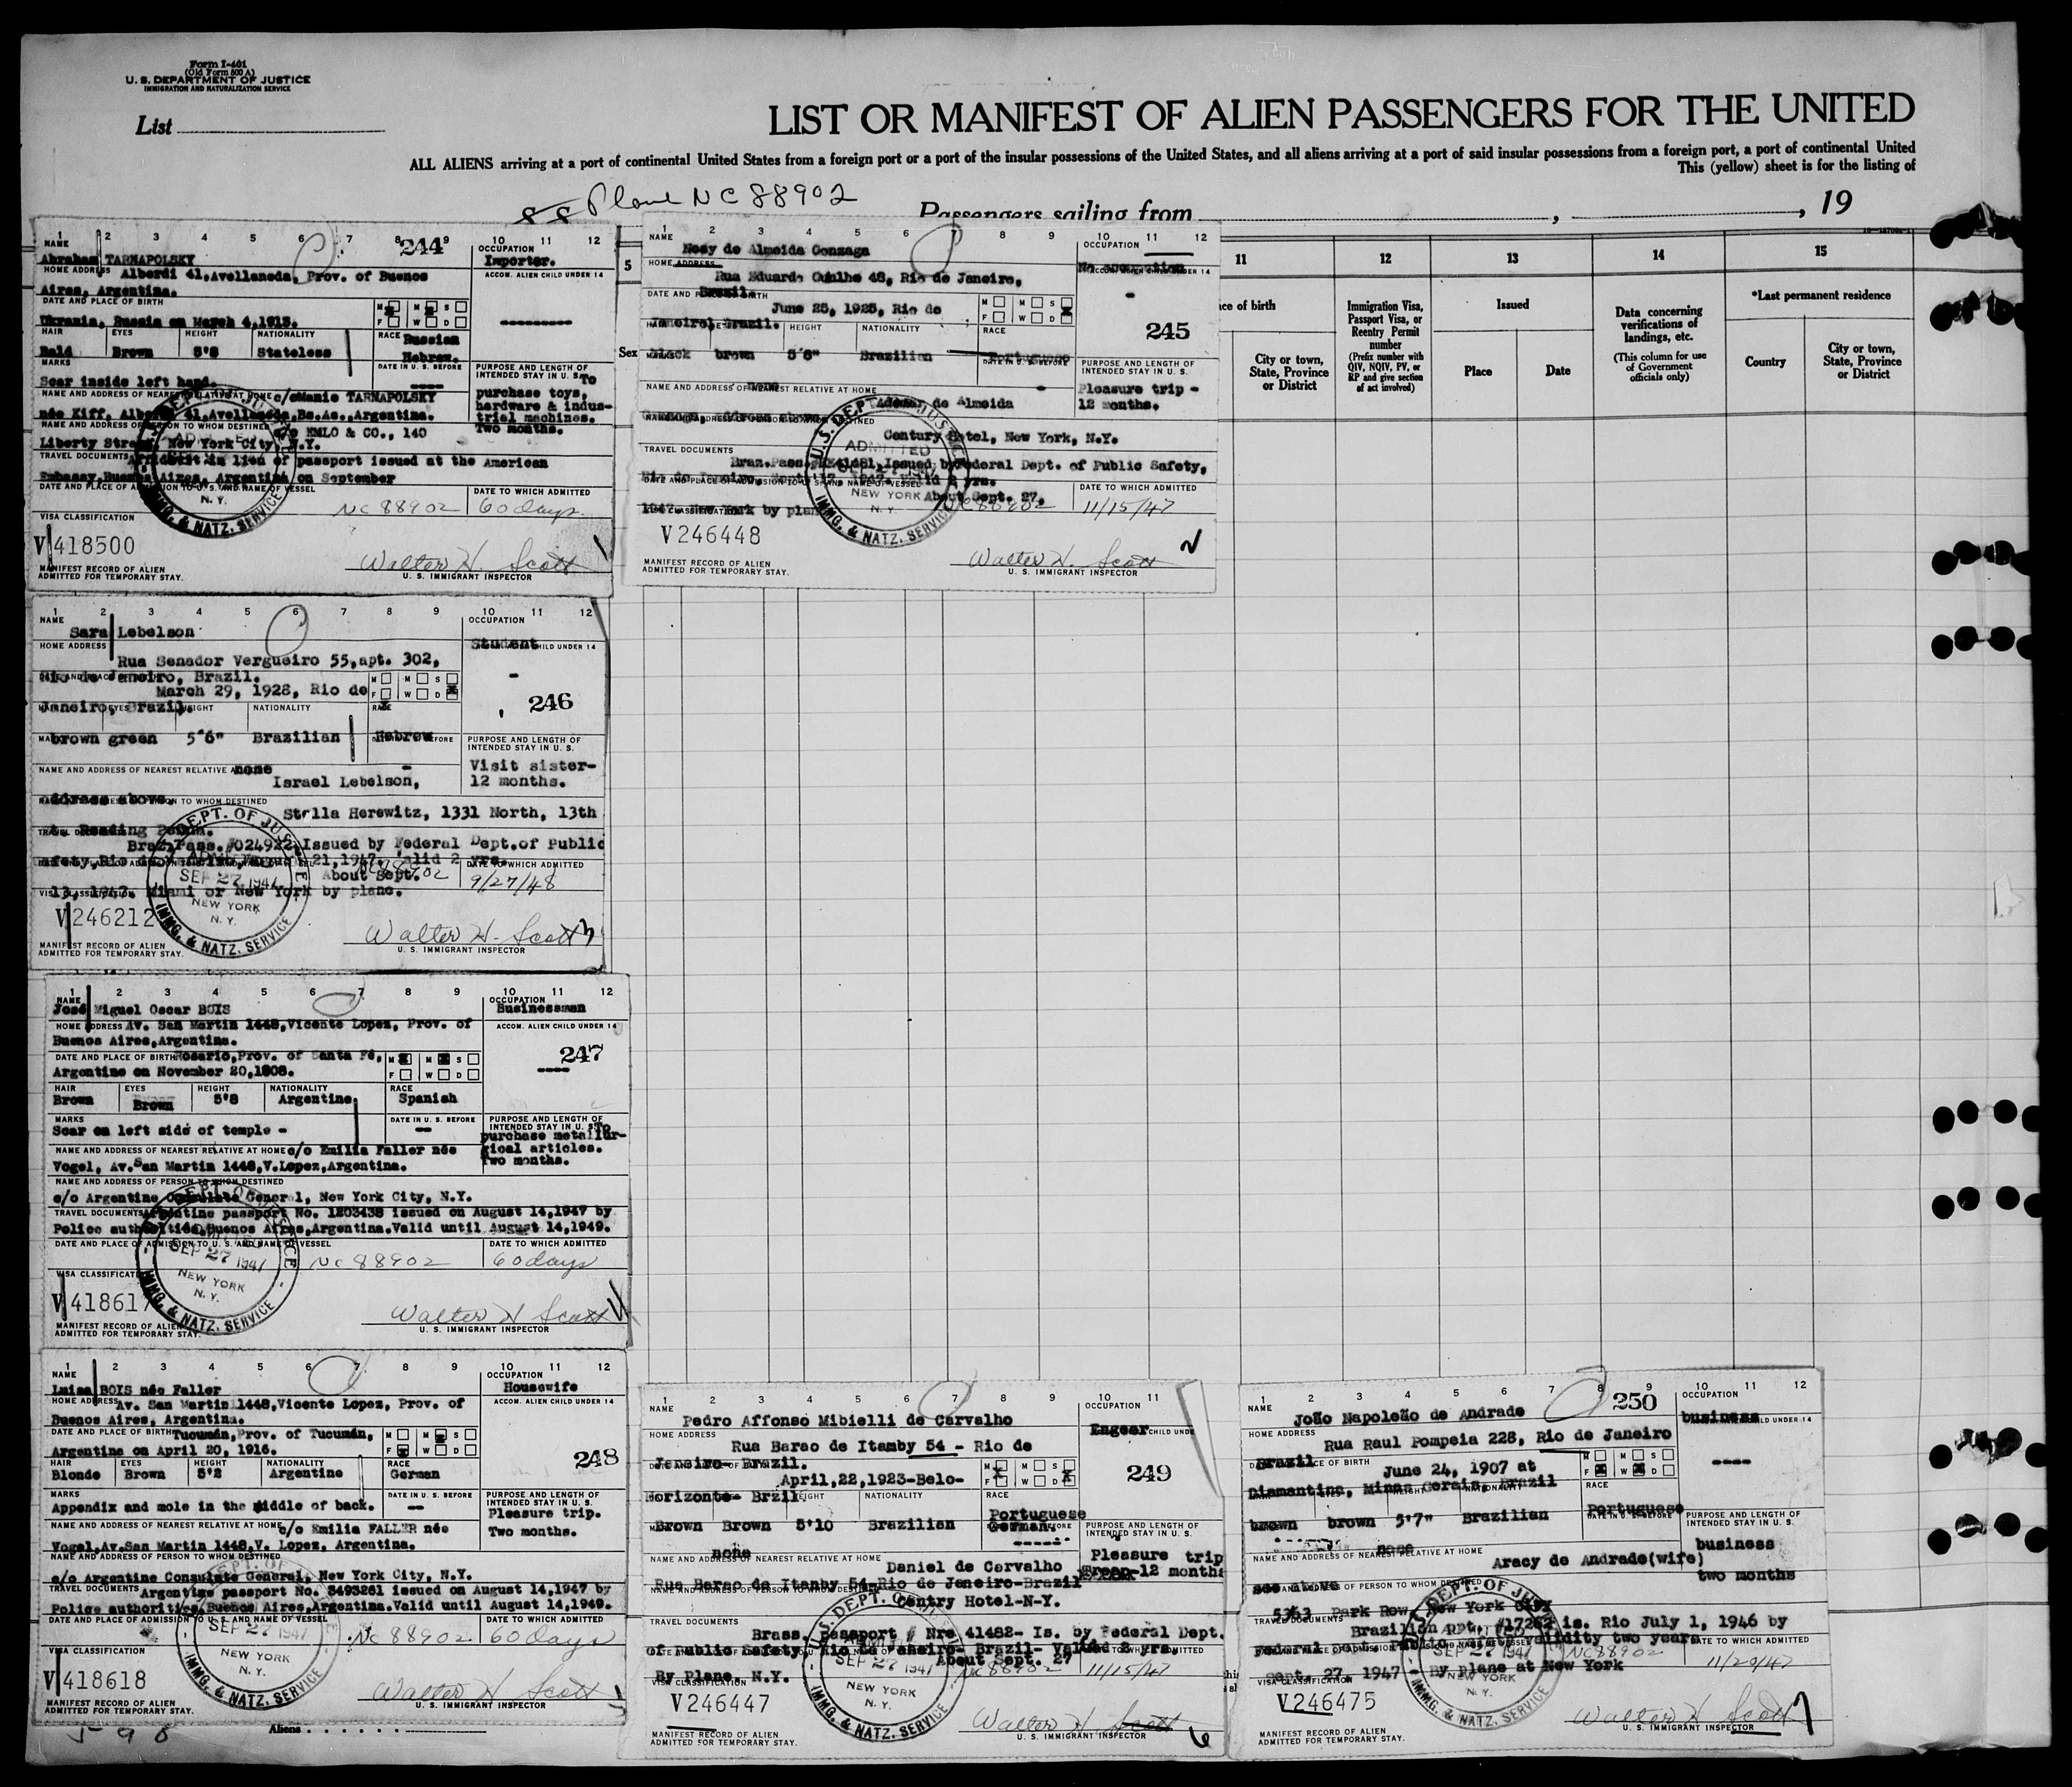 Form I-401
(Old Form 500 A)
U. S. DEPARTMENT OF JUSTICE
IMMIGRATION AND NATURALIZATION SERVICE
List
LIST OR MANIFEST OF ALIEN PASSENGERS FOR THE UNITED
ALL ALIENS arriving at a port of continental United States from a foreign port or a port of the insular possessions of the United States, and all aliens arriving at a port of said insular possessions from a foreign port, a port of continental United
This (yellow) sheet is for the listing of
Plane NC 88902
Passengers sailing from , , 19
1 2 3 4 5 6 7 8 9 10 11 12
244
NAME
Abraham TARNAPOLSKY
OCCUPATION
Importer.
HOME ADDRESS Alberdi 41, Avellaneda, Prov. of Buenos
Aires, Argentina.
ACCOM. ALIEN CHILD UNDER 14
DATE AND PLACE OF BIRTH
Ukrania, Russia on March 4, 1913.
M M S
F W D
HAIR EYES HEIGHT NATIONALITY RACE Russian
Bald Brown 5'8 Stateless Hebrew.
MARKS
Scar inside left hand.
DATE IN U. S. BEFORE
PURPOSE AND LENGTH OF
INTENDED STAY IN U. S. To
purchase toys,
hardware & indus-
trial machines.
Two months.
NAME AND ADDRESS OF NEAREST RELATIVE AT HOME c/o Manie TARNAPOLSKY
née Kiff, Alberdi 41, Avellaneda, Bs. As., Argentina.
NAME AND ADDRESS OF PERSON TO WHOM DESTINED
c/o EMLO & CO., 140
Liberty Street, New York City, N.Y.
TRAVEL DOCUMENTS Affidavit in lieu of passport issued at the American
Embassy, Buenos Aires, Argentina on September
DATE AND PLACE OF ADMISSION TO U. S. AND NAME OF VESSEL
DATE TO WHICH ADMITTED
NC 88902 60 days
VISA CLASSIFICATION
V 418500
Walter H. Scott
U. S. IMMIGRANT INSPECTOR
MANIFEST RECORD OF ALIEN
ADMITTED FOR TEMPORARY STAY.
N. Y.
IMMG. & NATZ. SERVICE
1 2 3 4 5 6 7 8 9 10 11 12
NAME
Nosy de Almeida Gonzaga
OCCUPATION
No occupation
HOME ADDRESS
Rua Eduardo 48, Rio de Janeiro,
Brazil.
June 25, 1925, Rio de
Janeiro, Brazil.
M M S
F W D
245
HEIGHT NATIONALITY RACE
black brown 5'6" Brazilian Portuguese
PURPOSE AND LENGTH OF
INTENDED STAY IN U. S.
Pleasure trip -
12 months.
NAME AND ADDRESS OF NEAREST RELATIVE AT HOME
Ademar de Almeida
address above
Century Hotel, New York, N.Y.
TRAVEL DOCUMENTS
Bran. Pass. Issued by Federal Dept. of Public Safety,
About Sept. 27,
New York by plane
DATE TO WHICH ADMITTED
NC 88902 11/15/47
V 246448
Walter H. Scott
U. S. IMMIGRANT INSPECTOR
MANIFEST RECORD OF ALIEN
ADMITTED FOR TEMPORARY STAY.
U. S. DEPT. OF JUSTICE
ADMITTED
NEW YORK
N. Y.
IMMG. & NATZ. SERVICE
11 12 13 14 15
Sex
City or town,
State, Province
or District
Immigration Visa,
Passport Visa, or
Reentry Permit
number
(Prefix number with
QIV, NQIV, PV, or
RP and give section
of act involved)
Issued
Place Date
Data concerning
verifications of
landings, etc.
(This column for use
of Government
officials only)
*Last permanent residence
Country
City or town,
State, Province
or District
1 2 3 4 5 6 7 8 9 10 11 12
NAME
Sara Lebelson
OCCUPATION
Student
HOME ADDRESS
Rua Senador Vergueiro 55, apt. 302,
Rio de Janeiro, Brazil.
March 29, 1928, Rio de
Janeiro, Brazil.
M M S
F W D
246
NATIONALITY RACE
brown green 5'6" Brazilian Hebrew
PURPOSE AND LENGTH OF
INTENDED STAY IN U. S.
Visit sister-
12 months.
NAME AND ADDRESS OF NEAREST RELATIVE none
Israel Lebelson,
address above.
TO WHOM DESTINED
Stella Horewitz, 1331 North, 13th
Reading
Braz. Pass. #024922, Issued by Federal Dept. of Public
21, 1947. valid 2 yrs.
About Sept.
13, 1947. Miami or New York by plane.
DATE TO WHICH ADMITTED
9/27/48
SEP 27 1947
NEW YORK
N. Y.
IMMG. & NATZ. SERVICE
V 246212
Walter H. Scott
U. S. IMMIGRANT INSPECTOR
MANIFEST RECORD OF ALIEN
ADMITTED FOR TEMPORARY STAY.
1 2 3 4 5 6 7 8 9 10 11 12
NAME
José Miguel Oscar BOIS
OCCUPATION
Businessman
HOME ADDRESS Av. San Martin 1448, Vicente Lopez, Prov. of
Buenos Aires, Argentina.
ACCOM. ALIEN CHILD UNDER 14
DATE AND PLACE OF BIRTH Rosario, Prov. of Santa Fé,
Argentine on November 20, 1908.
M M S
F W D
247
HAIR EYES HEIGHT NATIONALITY RACE
Brown Brown 5'8 Argentine. Spanish
MARKS
Scar on left side of temple -
DATE IN U. S. BEFORE
PURPOSE AND LENGTH OF
INTENDED STAY IN U. S. To
purchase metallur-
gical articles.
Two months.
NAME AND ADDRESS OF NEAREST RELATIVE AT HOME c/o Emilia Faller née
Vogel, Av. San Martin 1448, V. Lopez, Argentina.
NAME AND ADDRESS OF PERSON TO WHOM DESTINED
c/o Argentine Consulate General, New York City, N.Y.
TRAVEL DOCUMENTS Argentine passport No. 1203438 issued on August 14, 1947 by
Police authorities, Buenos Aires, Argentina. Valid until August 14, 1949.
DATE AND PLACE OF ADMISSION TO U. S. AND NAME OF VESSEL
DATE TO WHICH ADMITTED
SEP 27 1947
NEW YORK
N. Y.
IMMG. & NATZ. SERVICE
NC 88902 60 days
VISA CLASSIFICATION
V 418617
Walter H Scott
U. S. IMMIGRANT INSPECTOR
MANIFEST RECORD OF ALIEN
ADMITTED FOR TEMPORARY STAY.
1 2 3 4 5 6 7 8 9 10 11 12
NAME
Luisa BOIS née Faller
OCCUPATION
Housewife
HOME ADDRESS Av. San Martin 1448, Vicente Lopez, Prov. of
Buenos Aires, Argentina.
ACCOM. ALIEN CHILD UNDER 14
DATE AND PLACE OF BIRTH Tucumán, Prov. of Tucumán,
Argentine on April 20, 1916.
M M S
F W D
248
HAIR EYES HEIGHT NATIONALITY RACE
Blonde Brown 5'2 Argentine German
MARKS
Appendix and mole in the middle of back.
DATE IN U. S. BEFORE
PURPOSE AND LENGTH OF
INTENDED STAY IN U. S.
Pleasure trip.
Two months.
NAME AND ADDRESS OF NEAREST RELATIVE AT HOME c/o Emilia FALLER née
Vogel, Av. San Martin 1448, V. Lopez, Argentina.
NAME AND ADDRESS OF PERSON TO WHOM DESTINED
c/o Argentine Consulate General, New York City, N.Y.
TRAVEL DOCUMENTS Argentine passport No. 3493261 issued on August 14, 1947 by
Police authorities, Buenos Aires, Argentina. Valid until August 14, 1949.
DATE AND PLACE OF ADMISSION TO U. S. AND NAME OF VESSEL
DATE TO WHICH ADMITTED
SEP 27 1947
NEW YORK
N. Y.
IMMG. & NATZ. SERVICE
NC 88902 60 days
VISA CLASSIFICATION
V 418618
Walter H Scott
U. S. IMMIGRANT INSPECTOR
MANIFEST RECORD OF ALIEN
ADMITTED FOR TEMPORARY STAY.
Aliens
1 2 3 4 5 6 7 8 9 10 11
NAME
Pedro Affonso Mibielli de Carvalho
OCCUPATION
HOME ADDRESS
Rua Barao de Itamby 54 - Rio de
Janeiro- Brazil.
April, 22, 1923-Belo-
Horizonte- Brzil
M M S
F W D
249
NATIONALITY RACE
Portuguese
Brown Brown 5'10 Brazilian German
none
PURPOSE AND LENGTH OF
INTENDED STAY IN U. S.
Pleasure trip
12 months
NAME AND ADDRESS OF NEAREST RELATIVE AT HOME
Daniel de Carvalho
Rua Barao de Itamby 54-Rio de Janeiro-Brazil
Centry Hotel-N-Y.
TRAVEL DOCUMENTS
Brass. Passport # Nre 41482- Is. by Federal Dept.
of Public Safety Rio de Janeiro- Brazil- Valid 2 yrs.
About Sept. 27
By Plane, N.Y.
NC 88902 11/15/47
VISA CLASSIFICATION
V 246447
SEP 27 1947
NEW YORK
N. Y.
IMMG. & NATZ. SERVICE
Walter H Scott
U. S. IMMIGRANT INSPECTOR
MANIFEST RECORD OF ALIEN
ADMITTED FOR TEMPORARY STAY.
6
1 2 3 4 5 6 7 8 9 10 11 12
250
NAME
João Napoleão de Andrade
OCCUPATION
business
HOME ADDRESS
Rua Raul Pompeia 228, Rio de Janeiro
Brazil
June 24, 1907 at
Diamantina, Minas Gerais, Brazil
M M S
F W D
RACE
brown brown 5'7" Brazilian Portuguese
none
PURPOSE AND LENGTH OF
INTENDED STAY IN U. S.
business
two months
NAME AND ADDRESS OF NEAREST RELATIVE AT HOME
Aracy de Andrade (wife)
see above
Park Row, New York City
TRAVEL DOCUMENTS
Brazilian ppt. #17262 is. Rio July 1, 1946 by
validity two years
DATE TO WHICH ADMITTED
Sept. 27, 1947 - By plane at New York
NC 88902 11/29/47
VISA CLASSIFICATION
V 246475
NEW YORK
N. Y.
IMMG. & NATZ. SERVICE
Walter H Scott
U. S. IMMIGRANT INSPECTOR
MANIFEST RECORD OF ALIEN
ADMITTED FOR TEMPORARY STAY.